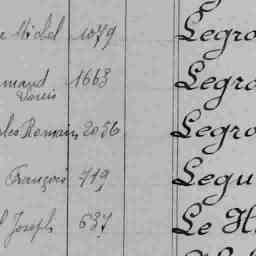 e Michel 1079 Legro
mand 1663 Legra
Louis
les Romain 2056 Legro
François 719 Legu
l Joseph 637 Le H